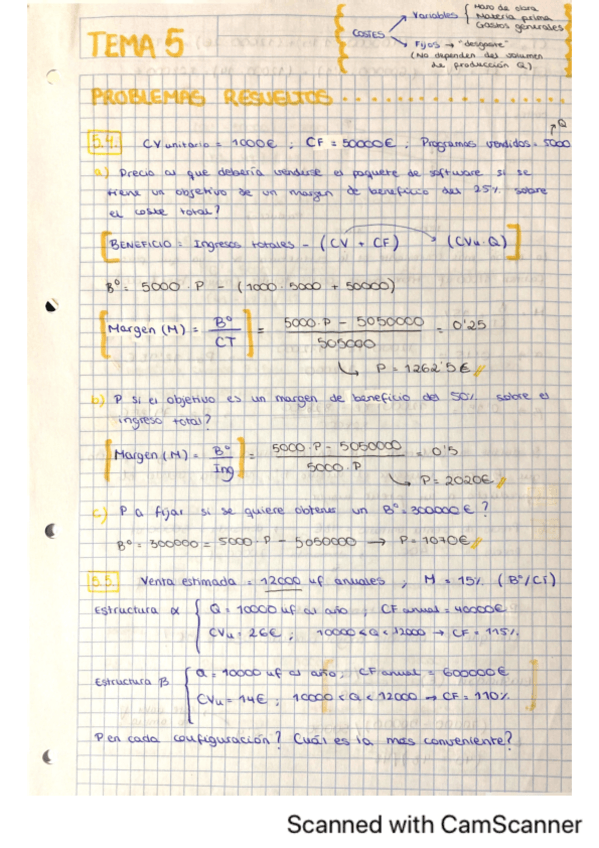 TEMA 5
COSTES
Variables
Mano de obra
Materia prima
Gastos generales
Fijos → "desgaste"
(No dependen del volumen
de producción Q)
PROBLEMAS RESUELTOS
5.4. CV unitario = 1000€ ; CF = 50000€ ; Programas vendidos = 5000
Q
a) Precio al que debería venderse el paquete de software si se
tiene un objetivo de un margen de beneficio del 25% sobre
el coste total?
[BENEFICIO = Ingresos totales - (CV + CF) → (CVu·Q)]
Bº = 5000·P - (1000·5000 + 50000)
[Margen (M) = Bº/CT] = 5000·P - 5050000 / 505000 = 0'25
↳ P = 1262'5€
b) P si el objetivo es un margen de beneficio del 50% sobre el
ingreso total?
[Margen (M) = Bº/Ing] = 5000·P - 5050000 / 5000·P = 0'5
↳ P = 2020€
c) P a fijar si se quiere obtener un Bº = 300000€ ?
Bº = 300000 = 5000·P - 5050000 → P = 1070€
5.5. Venta estimada = 12000 uf anuales ; M = 15% (Bº/CT)
Estructura α { Q = 10000 uf al año ; CF anual = 40000€
CVu = 26€ ; 10000<Q<12000 → CF = 115%
Estructura β { Q = 10000 uf al año ; CF anual = 600000€
CVu = 14€ ; 10000<Q<12000 → CF = 110%
P en cada configuración? Cuál es la más conveniente?
Scanned with CamScanner